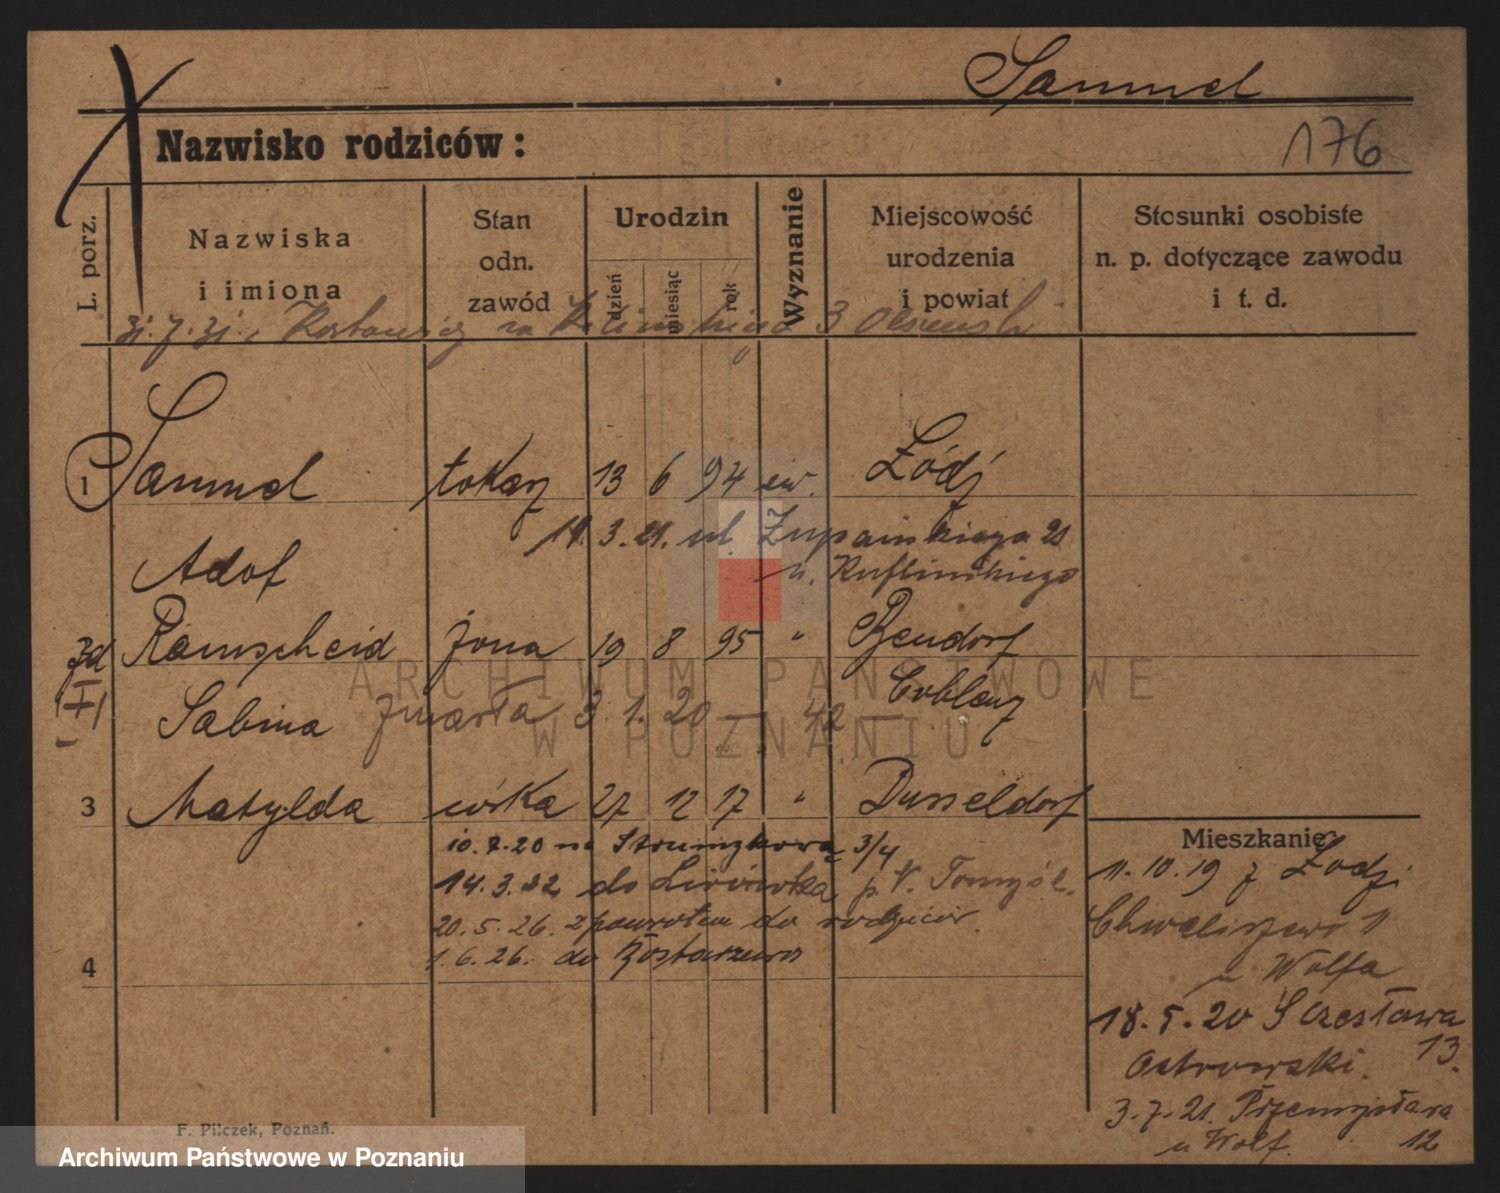 Samuel
176
Nazwisko rodziców:
L. porz.
Nazwiska
i imiona
Stan
odn.
zawód
Urodzin
dzień
miesiąc
rok
Wyznanie
Miejscowość
urodzenia
i powiat
Stosunki osobiste
n. p. dotyczące zawodu
i t. d.
1 Samuel tokarz 13 6 94 ew. Łódź
14.3.21. ul. Żupańskiego 21
Adolf
u.
Ramscheid żona 19 8 95 " Bendorf
Sabina zmarła 3.1.20 — 42 — Coblenz
3 Matylda córka 27 12 17 " Dusseldorf
10.7.20 na Strumykową 3/4
14.3.22 do Lwówka p. N. Tomyśl.
20.5.26. z powrotem do rodziców.
1.6.26. do
4
Mieszkanie
11.10.19 z Łodzi
Chwaliszewo 11
u Wolfa
18.5.20 Ś Czesława
13.
Ostrowski.
3.7.21. Przemysława
u Wolf. 12
F. Pilczek, Poznań.
ARCHIWUM PAŃSTWOWE
W POZNANIU
Archiwum Państwowe w Poznaniu